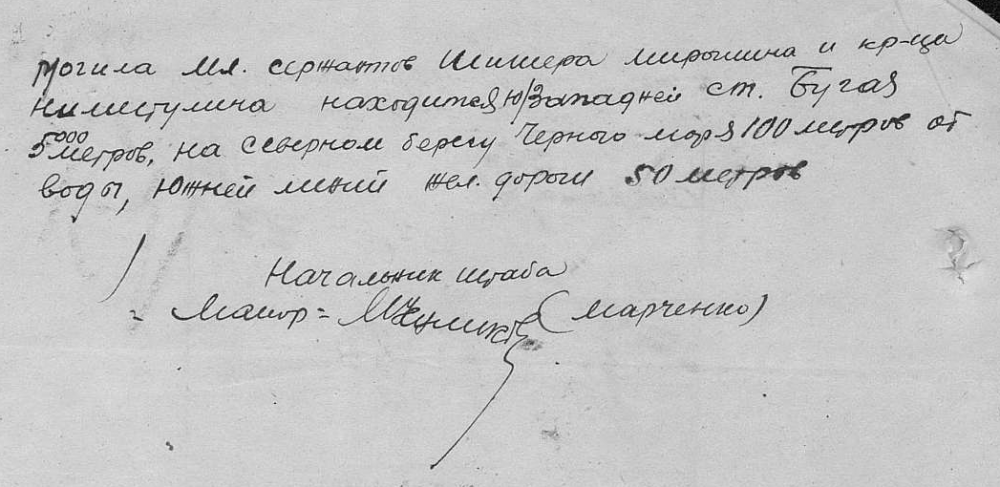 Могила мл. сержантов Шишера Мирышина и кр-ца
Нилистулина находится ю/западней ст. Бугая
5000 метров, на северном берегу Черного моря 100 метров от
воды, южней линий жел. дороги 50 метров
Начальник штаба
= Майор = (Марченко)